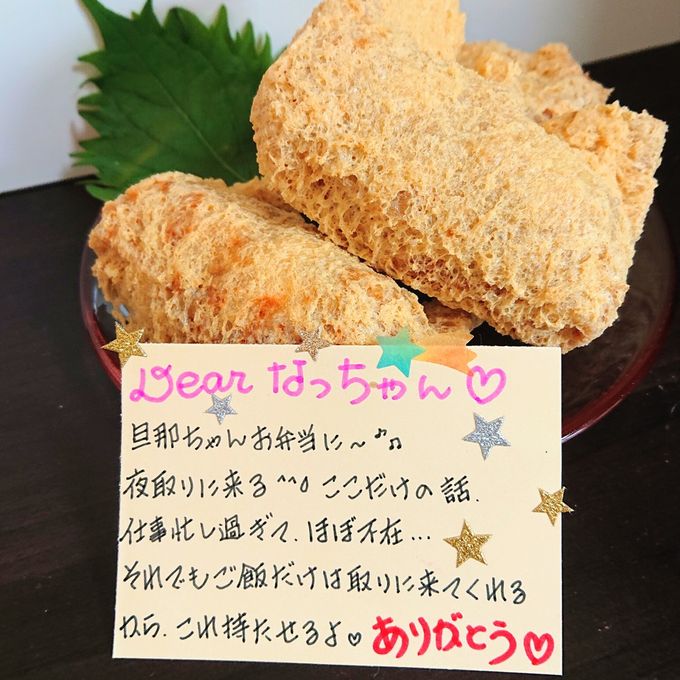 Dear なっちゃん♡
旦那ちゃんお弁当に〜♪♫
夜取りに来る^^♪ ここだけの話.
仕事忙し過ぎて、ほぼ不在…
それでもご飯だけは取りに来てくれる
から、これ持たせるよ♥ ありがとう♡